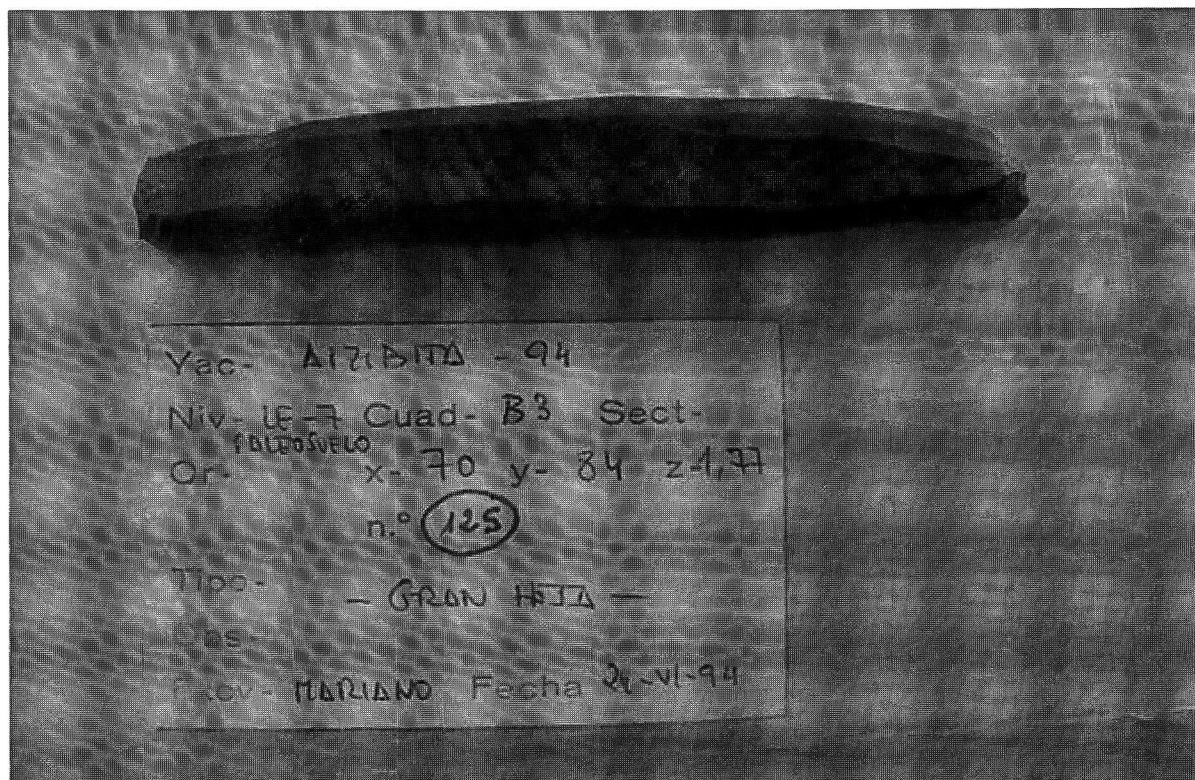 Yac- AIZIBITA - 94
Niv- UE-7 Cuad- B3 Sect-
PALEOSUELO
Or- x- 70 y- 84 z-1,77
n.º 125
Tipo- - GRAN HOJA -
Obs-
Excv- MARIANO Fecha -VI-94